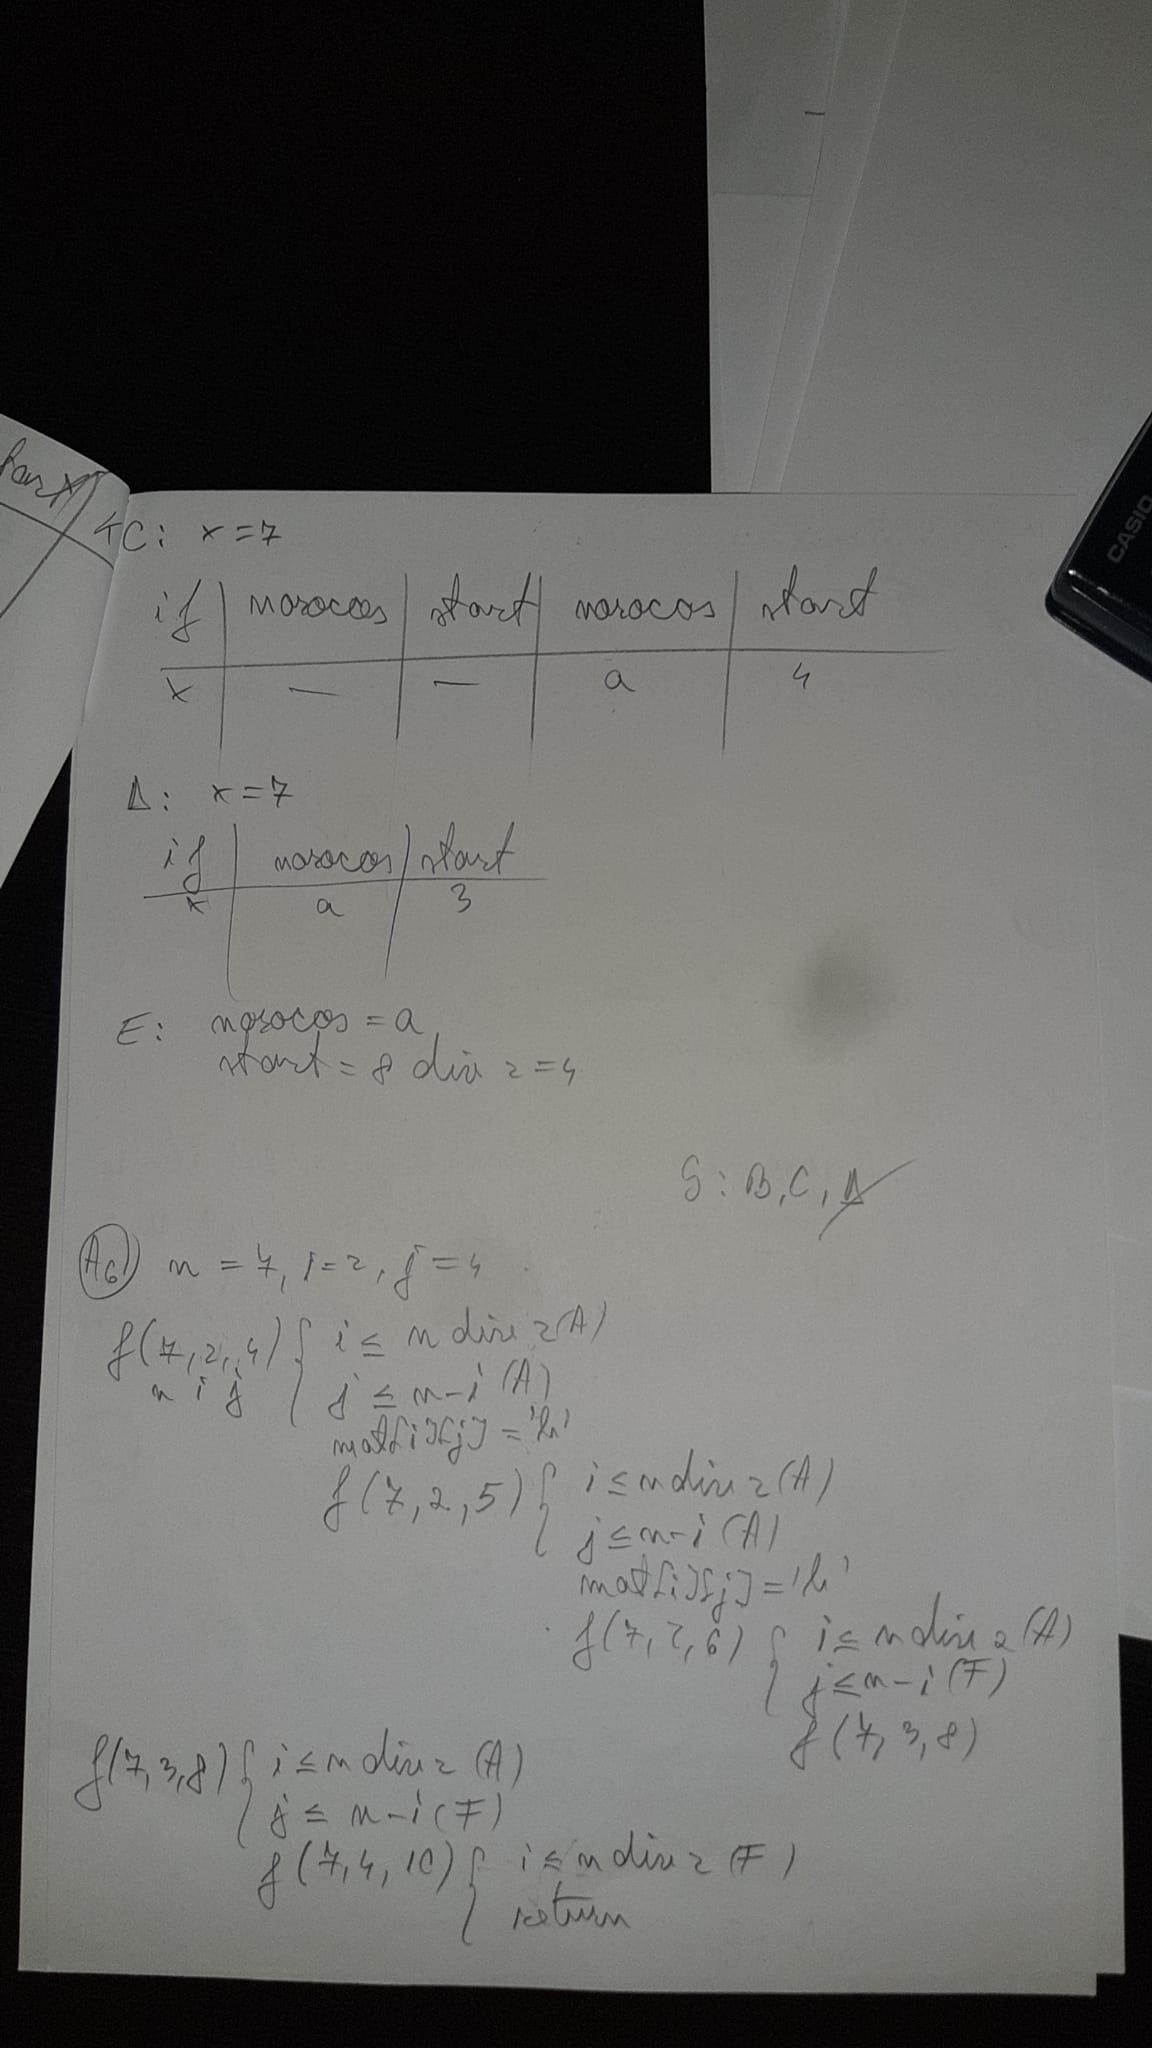 4C: x=7
if | norocos | start | norocos | start
x | — | — | a | 4
Δ: x=7
if | norocos | start
x | a | 3
E: norocos = a
start = 8 div 2 = 4
S: B, C,
A6) n = 7, i=2, j=4
f(7,2,4) { i ≤ n div 2 (A)
n i j
j ≤ n-i (A)
mat[i][j] = 'b'
f(7,2,5) { i ≤ n div 2 (A)
j ≤ n-i (A)
mat[i][j] = 'b'
f(7,2,6) { i ≤ n div 2 (A)
j ≤ n-i (F)
f(7,3,8)
f(7,3,8) { i ≤ n div 2 (A)
j ≤ n-i (F)
f(7,4,10) { i ≤ n div 2 (F)
return
CASIO